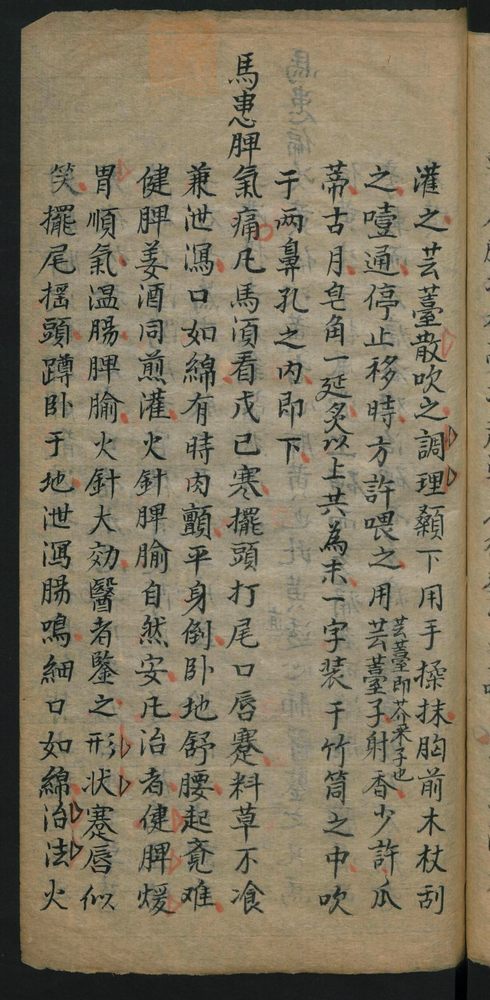 灌之芸薹散吹之調理顙下用手搡抹胸前木杖刮
之噎通停止移時方許喂之用芸薹子射香少許瓜
芸薹即芥菜子也
蒂古月皂角一延炙以上共為末一字装于竹筒之中吹
于两鼻孔之内即下
馬患脾氣痛凡馬湏看戊己寒擺頭打尾口唇蹇料草不飡
兼泄瀉口如綿有時肉顫平身倒卧地舒腰起竟难
健脾姜酒同煎灌火針脾腧自然安凡治者健脾煖
胃順氣温腸脾腧火針大効醫者鑒之形状蹇唇似
笑擺尾揺頭蹲卧于地泄瀉腸鳴細口如綿治法火